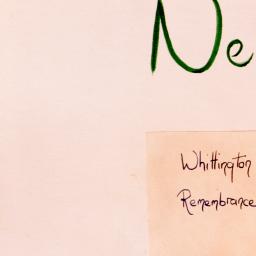 Ne
Whittington
Remembrance